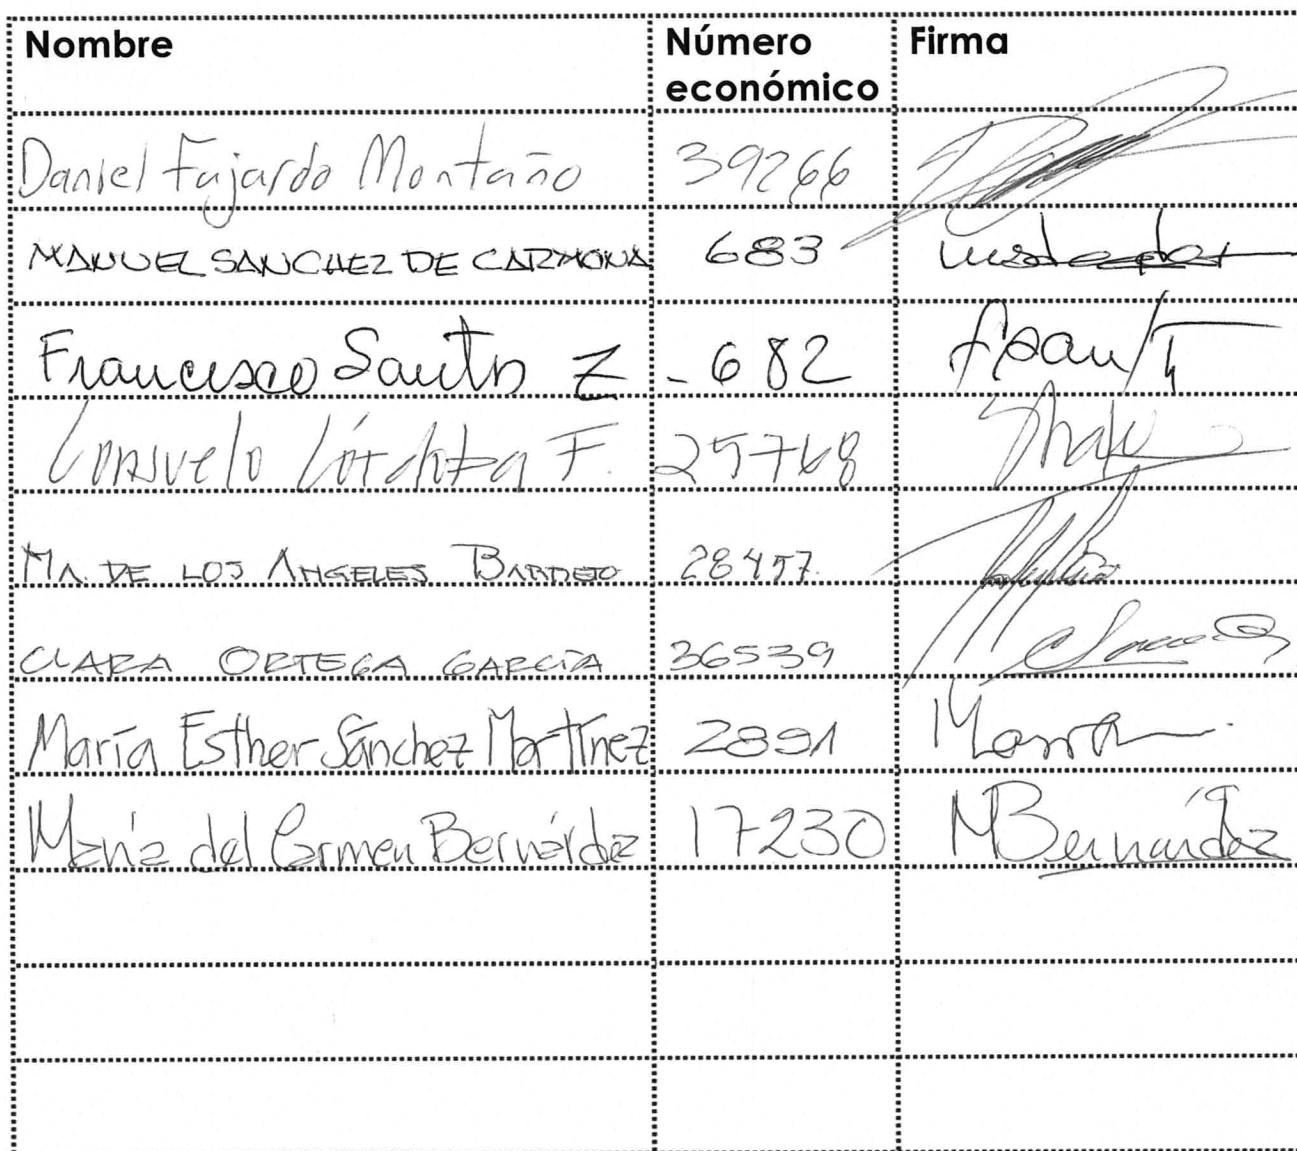 Nombre Número económico Firma
Daniel Fajardo Montaño 39266
MANUEL SANCHEZ DE CARMONA 683
Francisco Santos Z - 682
Consuelo Córdoba F. 25768
MA. DE LOS ANGELES BARRETO 28457.
CLARA ORTEGA GARCÍA 36539
María Esther Sánchez Martínez 2891
María del Carmen Bernárdez 17230 MBernárdez